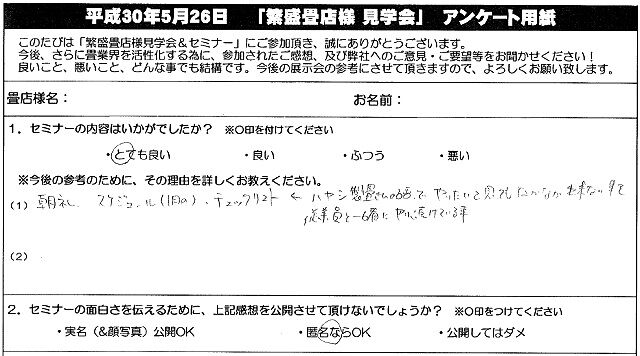 平成30年5月26日 「繁盛畳店様 見学会」 アンケート用紙
このたびは「繁盛畳店様見学会&セミナー」にご参加頂き、誠にありがとうございます。
今後、さらに畳業界を活性化する為に、参加されたご感想、及び弊社へのご意見・ご要望等をお聞かせください！
良いこと、悪いこと、どんな事でも結構です。今後の展示会の参考にさせて頂きますので、よろしくお願い致します。
畳店様名： お名前：
1．セミナーの内容はいかがでしたか？ ※〇印を付けてください
・とても良い ・良い ・ふつう ・悪い
※今後の参考のために、その理由を詳しくお教えください。
(1) 朝礼、スケジュール(1日の)、チェックリスト ← やりたいと思っても なかなか出来ない事を
従業員と一緒に
(2)
2．セミナーの面白さを伝えるために、上記感想を公開させて頂けないでしょうか？ ※〇印をつけてください
・実名（&顔写真）公開OK ・匿名ならOK ・公開してはダメ